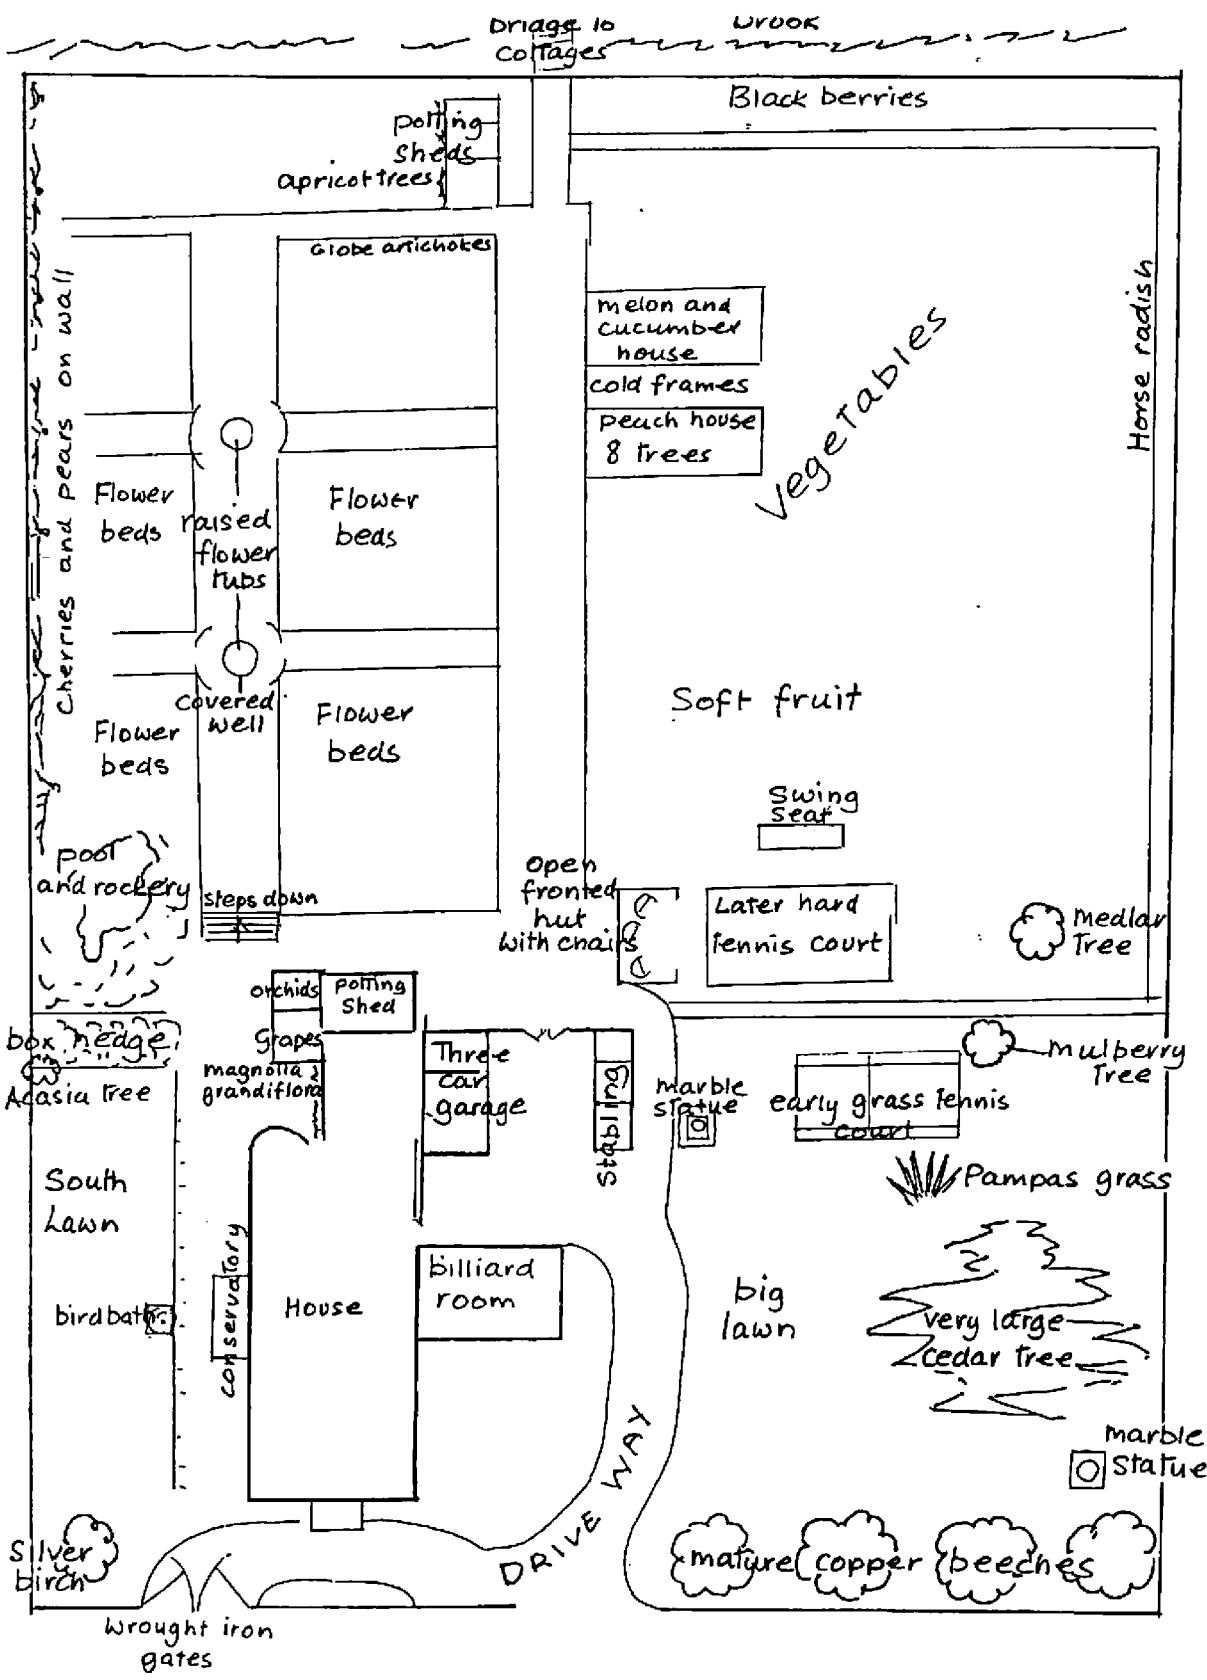 Bridge to
Cottages
brook
Black berries
potting
sheds
apricot trees
Globe artichokes
Cherries and pears on wall
melon and
cucumber
house
cold frames
peach house
8 trees
Vegetables
Horse radish
Flower
beds
raised
flower
tubs
Flower
beds
covered
well
Flower
beds
Flower
beds
Soft fruit
Swing
seat
pool
and rockery
steps down
open
fronted
hut
with chairs
Later hard
Tennis court
Medlar
Tree
orchids
potting
Shed
Grapes
box hedge
Acasia tree
magnolia
grandiflora
Three
car
garage
Stabling
marble
statue
early grass tennis
court
Mulberry
Tree
Pampas grass
South
Lawn
birdbath
conservatory
House
billiard
room
big
lawn
very large
cedar tree
marble
statue
DRIVE WAY
Silver
birch
mature copper beeches
Wrought iron
gates